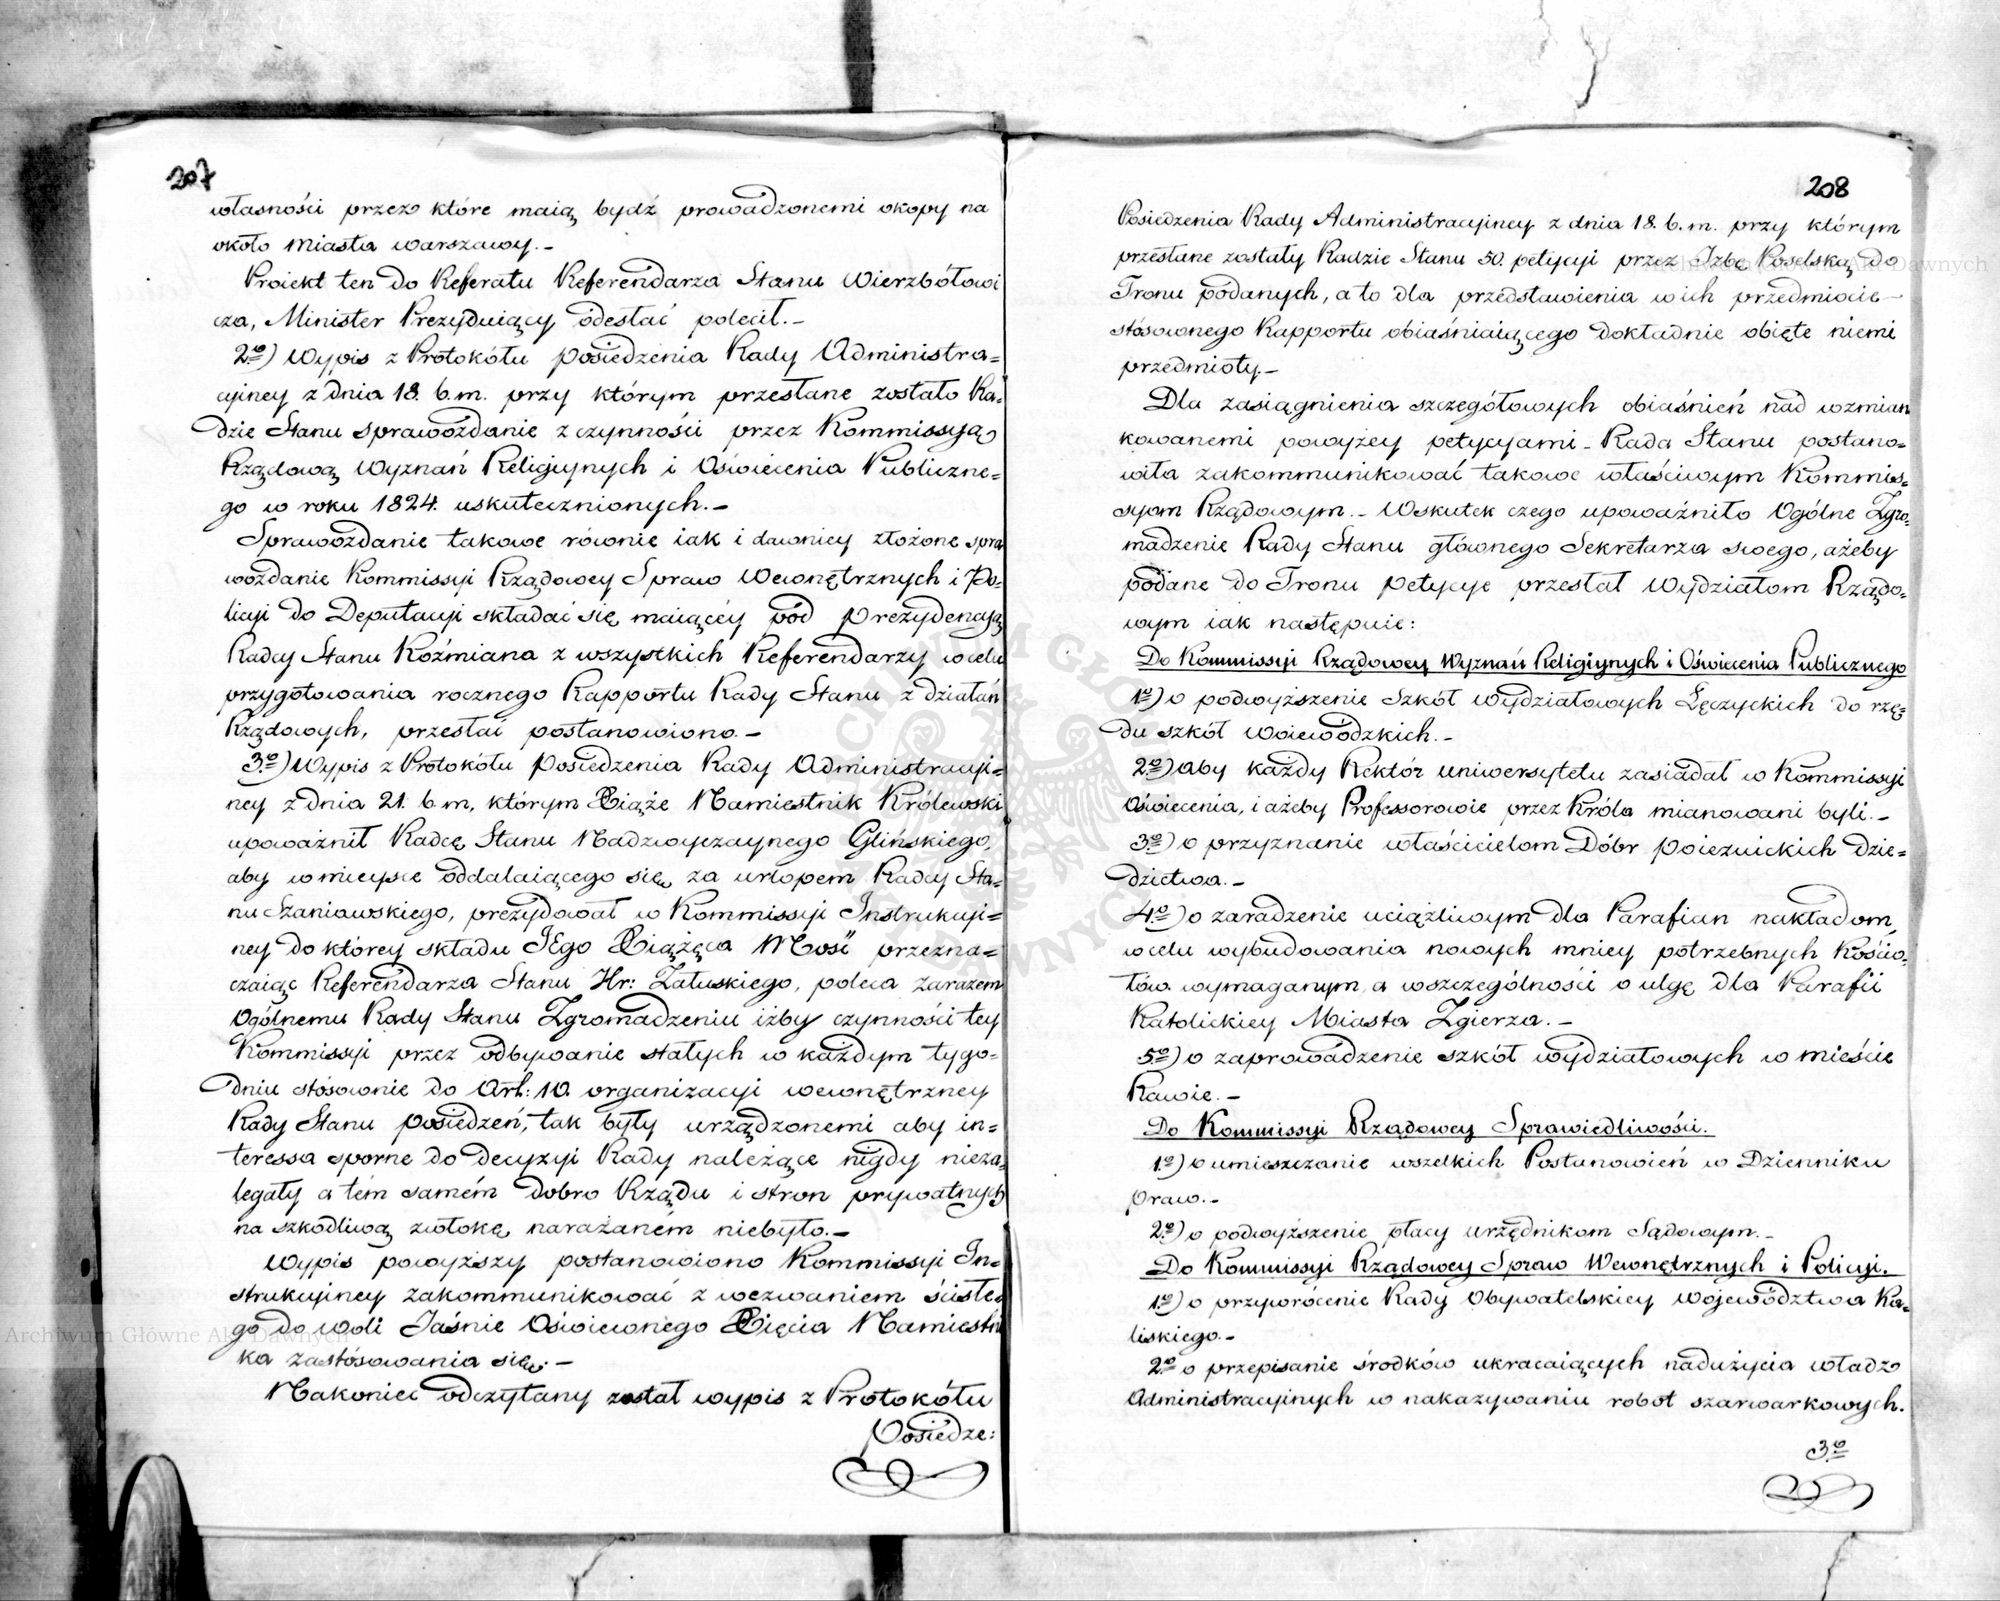 207
własności przez które maią bydź prowadzonemi okopy na
około miasta warszawy.-
Proiekt ten do Referatu Referendarza Stanu Wierzbółowi
cza, Minister Prezyduiący odesłać polecił.-
2º) Wypis z Protokółu posiedzenia Rady Administra=
cyjney z dnia 18. b. m. przy którym przesłane zostało Ra=
dzie Stanu sprawozdanie z czynności przez Kommissyą
Rządową Wyznań Religijnych i Oświecenia Publiczne=
go w roku 1824. uskutecznionych.-
Sprawozdanie takowe równie iak i dawniey złożone spra
wozdanie Kommissyi Rządowey Spraw Wewnętrznych i Po=
licyi do Deputacyi składać się maiącéy pod prezydencyą
Radcy Stanu Koźmiana z wszystkich Referendarzy w celu
przygotowania rocznego Rapportu Rady Stanu z działań
Rządowych, przesłać postanowiono.-
3º) Wypis z Protokółu Posiedzenia Rady Administracyi=
ney z dnia 21. b. m, którym Xiąże Namiestnik Królewski
upoważnił Radcę Stanu Nadzwyczaynego Glińskiego,
aby w mieysce oddalaiącego się za urlopem Radcy Sta=
nu Szaniawskiego, prezydował w Kommissyi Instrukcyi=
ney do którey składu JEgo Xiążęca Mość przezna=
czaiąc Referendarza Stanu Hr: Załuskiego, poleca zarazem
Ogólnemu Rady Stanu Zgromadzeniu iżby czynności tey
Kommissyi przez odbywanie stałych w każdym tygo=
dniu stósownie do Art: 10. organizacyi wewnętrzney
Rady Stanu posiedzeń, tak były urządzonemi aby in=
teressa sporne do decyzyi Rady należące nigdy nieza=
legały a tém samém dobro Rządu i stron prywatnych
na szkodliwą zwłokę narażaném niebyło.-
Wypis powyższy postanowiono Kommissyi In=
strukcyiney zakommunikować z wezwaniem ściste
go do woli Jaśnie Oświeconego Xięcia Namiestni
ka zastósowania się.-
Nakoniec odczytany został wypis z Protokółu
Posiedze:
208
Posiedzenia Rady Administracyiney z dnia 18. b. m. przy którym
przesłane zostały Radzie Stanu 50. petycyi przez Izbę Poselską do
Tronu podanych, a to dla przedstawienia w ich przedmiocie
stósownego Rapportu obiaśniaiącego dokładnie obięte niemi
przedmioty.-
Dla zasiągnienia szczegółowych obiaśnień nad wzmian
kowanemi powyżey petycyami - Rada Stanu postano=
wiła zakommunikować takowe właściwym Kommis=
syom Rządowym.- Wskutek czego upoważniło Ogólne Zgro=
madzenie Rady Stanu głównego Sekretarza swego, ażeby
podane do Tronu petycye przesłał Wydziałom Rządo=
wym iak następuie:
Do Kommissyi Rządowey Wyznań Religiynych i Oświecenia Publicznego
1º) o podwyższenie Szkół Wydziałowych Łęczyckich do rzę=
du szkół woiewódzkich.-
2º) aby każdy Rektór uniwersytetu zasiadał w Kommissyi
Oświecenia, i ażeby Professorowie przez Króla mianowani byli.-
3º) o przyznanie właścicielom Dóbr poiezuickich dzie=
dzictwa.-
4º) o zaradzenie uciążliwym dla Parafian nakładom,
w celu wybudowania nowych mniey potrzebnych Kościo=
łów wymaganym, a wszczególności o ulgę dla Parafii
Katolickiey Miasta Zgierza.-
5º) o zaprowadzenie szkół wydziałowych w mieście
Rawie.-
Do Kommissyi Rządowey Sprawiedliwości.
1º) o umieszczanie wszelkich Postanowień w Dzienniku
praw.-
2º) o podwyższenie płacy urzędnikom Sądowym.-
Do Kommissyi Rządowey Spraw Wewnętrznych i Policyi.
1º) o przywrócenie Rady Obywatelskiey Województwa Ka=
liskiego.-
2º o przepisanie środków ukracaiących nadużycia władz
Administracyinych w nakazywaniu robot szarwarkowych.
3º
Archiwum Główne Akt Dawnych
Archiwum Główne Akt Dawnych
ARCHIWUM GŁÓWNE AKT DAWNYCH